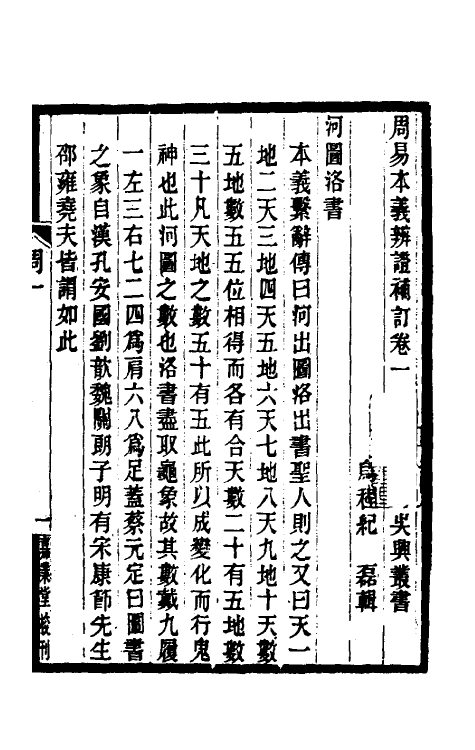 周易本義辨證補訂卷一
吳興叢書
烏程紀　磊輯
河圖洛書
本義繫辭傳曰河出圖洛出書聖人則之又曰天一
地二天三地四天五地六天七地八天九地十天數
五地數五五位相得而各有合天數二十有五地數
三十凡天地之數五十有五此所以成變化而行鬼
神也此河圖之數也洛書蓋取龜象故其數戴九履
一左三右七二四爲肩六八爲足蓋蔡元定曰圖書
之象自漢孔安國劉歆魏關朗子明有宋康節先生
邵雍堯夫皆謂如此
周一
一
堂叢刊